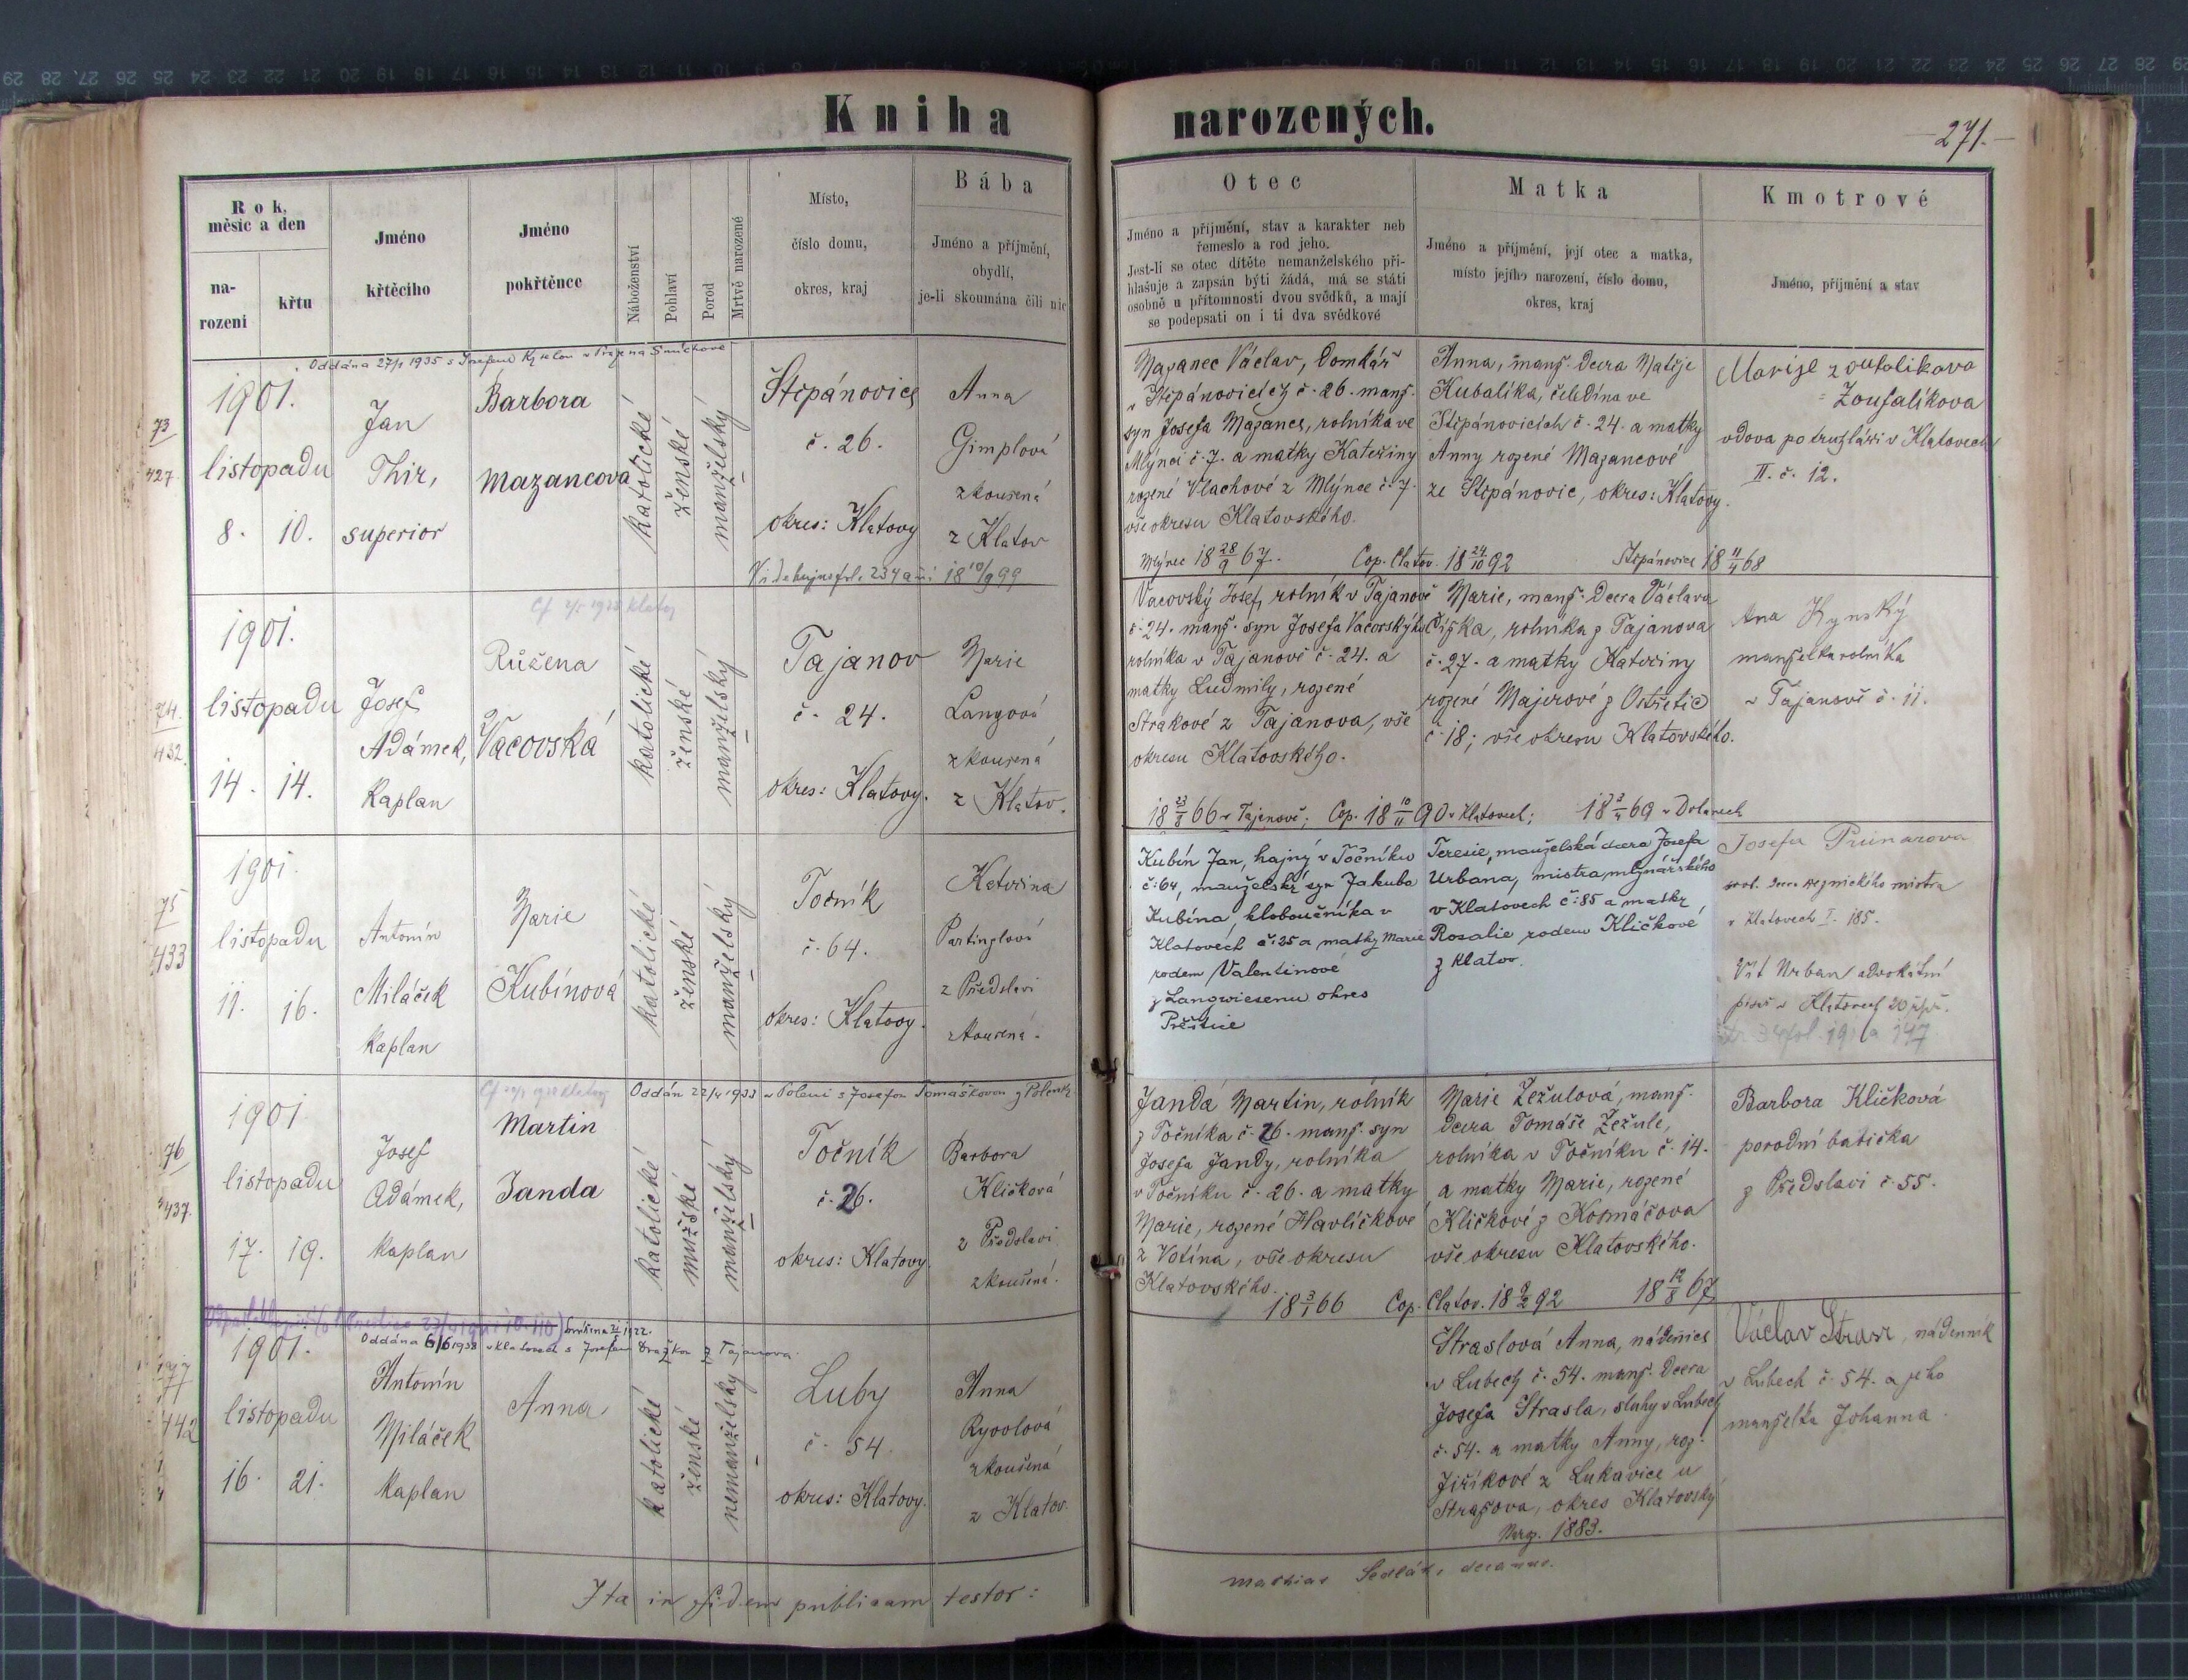 Kniha narozených.
271.
Rok, měsíc a den
narození
křtu
Jméno křtěcího
Jméno pokřtěnce
Náboženství
Pohlaví
Porod
Mrtvě narozené
Místo, číslo domu, okres, kraj
Bába
Jméno a příjmění, obydlí, je-li skoumána čili nic
Otec
Jméno a příjmění, stav a karakter neb
řemeslo a rod jeho.
Jest-li se otec dítěte nemanželského při-
hlašuje a zapsán býti žádá, má se státi
osobně u přítomnosti dvou svědků, a mají
se podepsati on i ti dva svědkové
Matka
Jméno a příjmění, její otec a matka,
místo jejího narození, číslo domu,
okres, kraj
Kmotrové
Jméno, příjmění a stav
73
427
1901.
listopadu
8. 10.
Jan
Thir,
superior
Barbora
Mazancova
katolické
ženské
manželský
Štěpánovice
č. 26.
okres: Klatovy
Anna
Gimplová
zkoušená
z Klatov
Mazanec Václav, domkář
v Štěpánovicích č. 26. manž.
syn Josefa Mazance, rolníka ve
Mlýnci č. 7. a matky Kateřiny
rozené Vlachové z Mlýnce č. 7.
vše okresu Klatovského.
Mlýnec 18 28/9 67.
Cop. Clatov. 18 24/10 92
Anna, manž. dcera Matěje
Kubalíka, čeledína ve
Štěpánovicích č. 24. a matky
Anny rozené Mazancové
ze Štěpánovic, okres: Klatovy.
Štěpánovice 18 11/4 68
Zoufalíkova
vdova po truhláři v Klatovech
II. č. 12.
74.
432.
1901.
listopadu
14. 14.
Josef
Adámek,
kaplan
Růžena
Vacovská
katolické
ženské
manželský
Tajanov
č. 24.
okres: Klatovy.
Marie
Langová
zkoušená
z Klatov.
Vacovský Josef, rolník v Tajanově
č. 24. manž. syn Josefa Vacovského
rolníka v Tajanově č. 24. a
matky Ludmily, rozené
Strakové z Tajanova, vše
okresu Klatovského.
18 23/8 66 v Tajanově; Cop. 18 10/11 90 v Klatovech;
Marie, manž. dcera Václava
Čížka, rolníka z Tajanova
č. 27. a matky Kateřiny
rozené Majerové z Ostřetic
č. 18; vše okresu Klatovského.
manželka rolníka
v Tajanově č. 11.
75
433
1901.
listopadu
11. 16.
Antonín
Miláček
kaplan
Marie
Kubínová
katolické
ženské
manželský
Točník
č. 64.
okres: Klatovy.
Kateřina
Partinglová
z Předslavi
zkoušená.
Kubín Jan, hajný v Točníku
č: 64, manželský syn Jakuba
Kubína, kloboučníka v
Klatovech č: 25 a matky Marie
rodem Valentinové
z Langwiesenu okres
Přeštice
Teresie, manželská dcera Josefa
Urbana, mistra mlynářského
v Klatovech č: 85 a matky
Rosalie rodem Kličkové
z Klatov.
v Klatovech I. 185.
Vít Urban advokátní
písař v Klatovech
76
437.
1901
listopadu
17. 19.
Josef
Adámek,
kaplan
Oddán 22/4 1933 v Poleni s Josefou Tomáškovou z Polenky
Martin
Janda
katolické
mužské
manželský
Točník
č. 26.
okres: Klatovy
Barbora
Kličková
z Předslavi
zkoušená.
Janda Martin, rolník
z Točníka č. 26. manž. syn
Josefa Jandy, rolníka
v Točníku č. 26. a matky
Marie, rozené Havlíčkové
z Votína, vše okresu
Klatovského.
18 3/1 66 Cop. Clatov. 18 9/2 92
Marie Žežulová, manž.
dcera Tomáše Žežule,
rolníka v Točníku č. 14.
a matky Marie, rozené
Kličkové z Kosmáčova
vše okresu Klatovského.
18 12/8 67
Barbora Kličková
porodní babička
z Předslavi č. 55.
77
442
1901.
listopadu
16. 21.
Antonín
Miláček
kaplan
Anna
katolické
ženské
nemanželský
Luby
č. 54.
okres: Klatovy.
Anna
Ryvolová
zkoušená
z Klatov.
Straslová Anna, nádenice
v Lubech č. 54. manž. dcera
Josefa Strasla, sluhy v Lubech
č. 54. a matky Anny, roz.
Jiříkové z Lukavice u
Stražova, okres Klatovský
Narz. 1883.
nádenník
v Lubech č. 54. a jeho
manželka Johanna.
Ita in fidem publicam testor:
Mathias Sedlák, decanus.